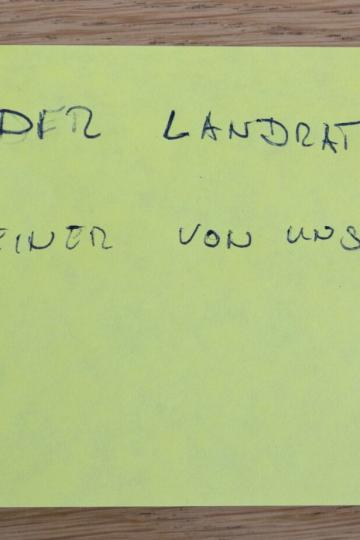 DER LANDRAT
EINER VON UNS